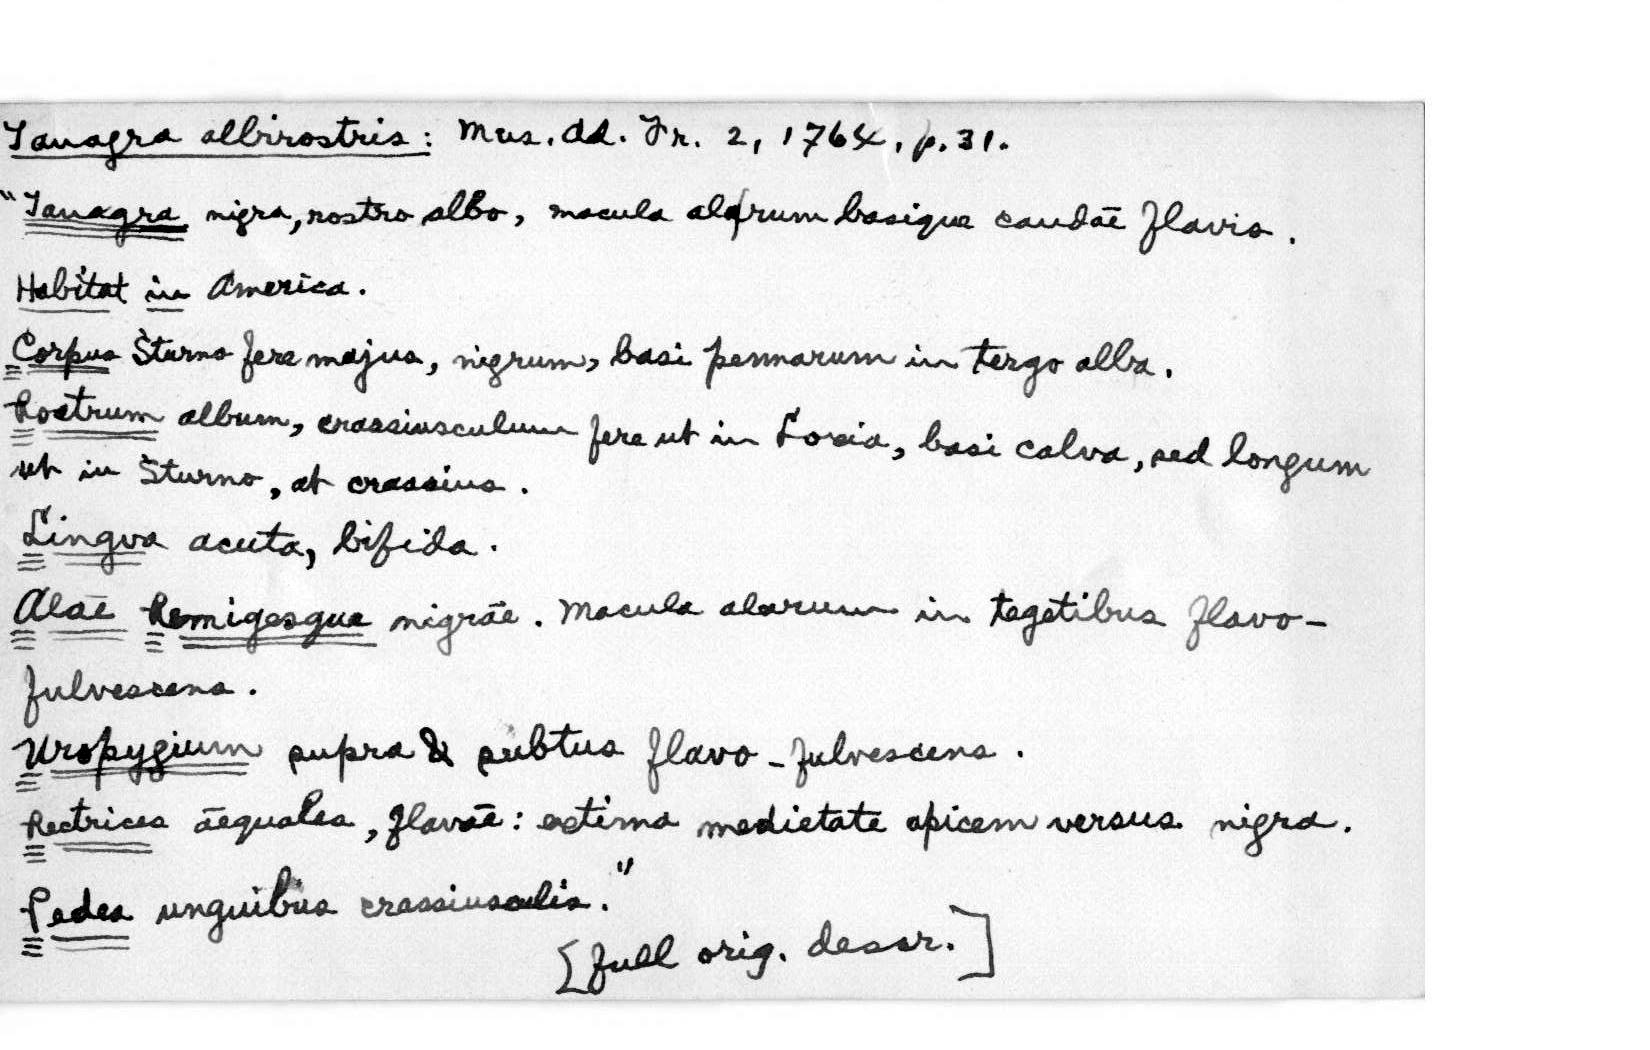 Tanagra albirostris: Mus. Ad. Fr. 2, 1764, p. 31.
"Tanagra nigra, rostro albo, macula alarum basique caudāe flavis.
Habitat in America.
Corpus Sturno fere majus, nigrum, basi pennarum in tergo alba.
Rostrum album, crassiusculum fere ut in Loxia, basi calva, sed longum
ut in Sturno, at crassius.
Lingva acuta, bifida.
Alāe Remigesque nigrāe. Macula alarum in tegetibus flavo-
fulvescens.
Uropygium supra & subtus flavo-fulvescens.
Rectrices āequales, flavāe: extima medietate apicem versus nigra.
Pedes unguibus crassiusculis."
[full orig. descr.]